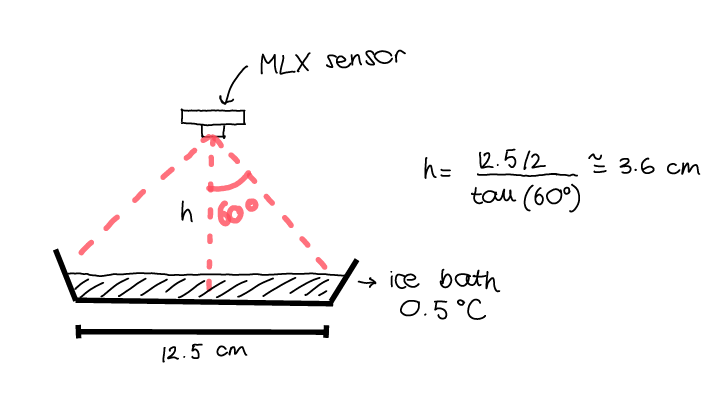 MLX sensor
h
60°
h = 12.5/2 / tan (60°) ≅ 3.6 cm
→ ice bath
0.5°C
12.5 cm